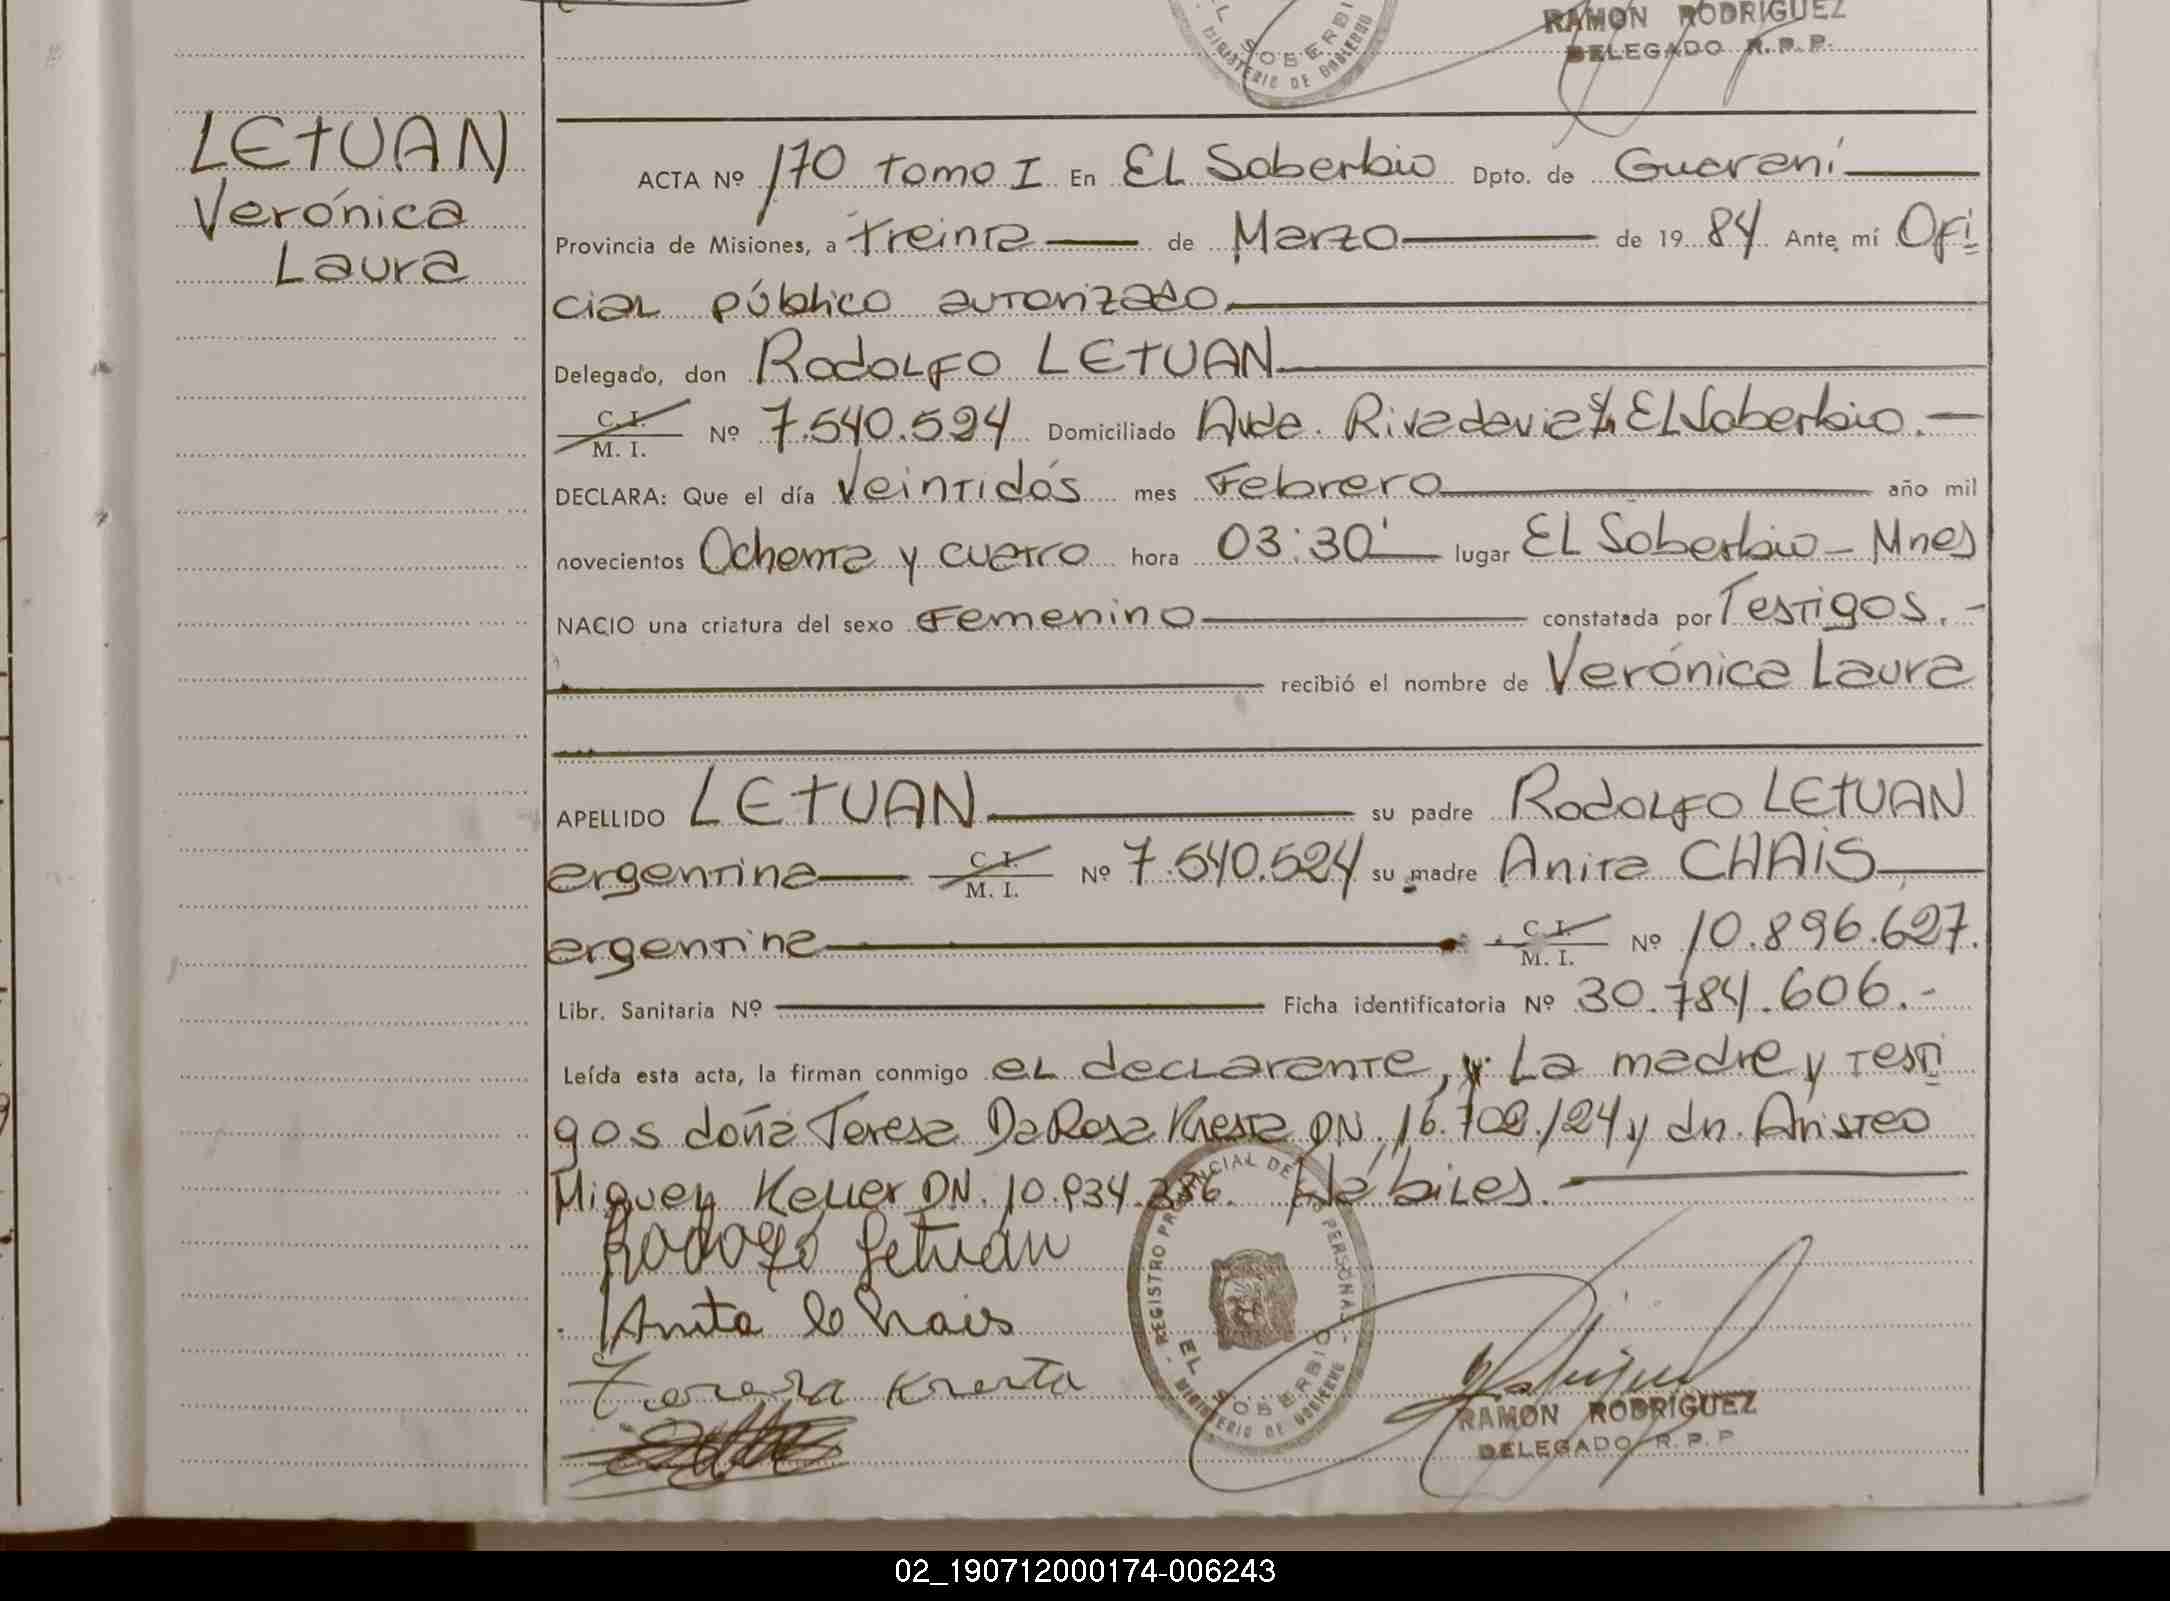 RAMON RODRIGUEZ
DELEGADO R.P.P.
SOBERBIO
MINISTERIO DE GOBIERNO
LETUAN
Verónica
Laura
ACTA Nº 170 tomo I En EL Soberbio Dpto. de Guaraní
Provincia de Misiones, a treinta de Marzo de 1984 Ante mí Ofi
cial público autorizado
Delegado, don Rodolfo LETUAN
C. I. M. I. Nº 7.540.524 Domiciliado Avda. Rivadavia s/n EL Soberbio.
DECLARA: Que el día Veintidós mes Febrero año mil
novecientos Ochenta y cuatro hora 03:30' lugar EL Soberbio - Mnes
NACIO una criatura del sexo Femenino constatada por Testigos.-
recibió el nombre de Verónica Laura
APELLIDO LETUAN su padre Rodolfo LETUAN
argentina C. I. M. I. Nº 7.540.524 su madre Anita CHAIS
argentina C. I. M. I. Nº 10.896.627.
Libr. Sanitaria Nº Ficha identificatoria Nº 30.784.606.-
Leída esta acta, la firman conmigo el declarante, y La madre y testi
gos doña Teresa DaRosa Kresta DN. 16.702.124 y dn. Aristeo
Miguel Keller DN. 10.934.386. Hábiles.
Rodolfo Letuan
Anita Chais
Teresa Kresta
REGISTRO PROVINCIAL DE LAS PERSONAS
EL SOBERBIO
MINISTERIO DE GOBIERNO
RAMON RODRIGUEZ
DELEGADO R.P.P.
02_190712000174-006243